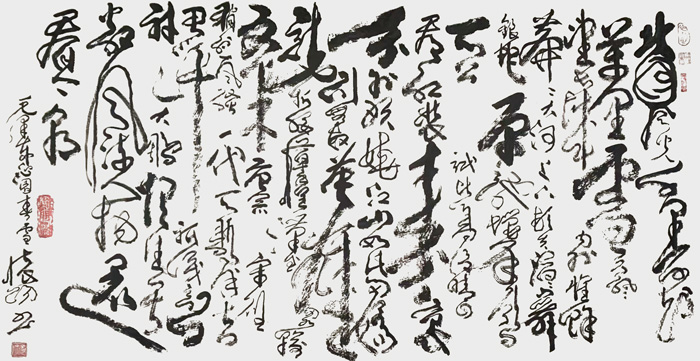 北國風光千里冰封
萬里雪飄
望長城內外惟餘
莽莽大河上下頓失滔滔山舞
銀蛇原馳蠟象欲
與天公
試比高須晴日
看紅裝素裹
分外妖嬈江山如此多嬌
引無數英雄競
折腰惜秦皇漢武略輸
文采唐宗宋祖
稍遜風騷一代天驕成吉
思汗只識彎弓
射大鵰俱往矣
數風流人物還
看今朝
毛澤東沁園春雪